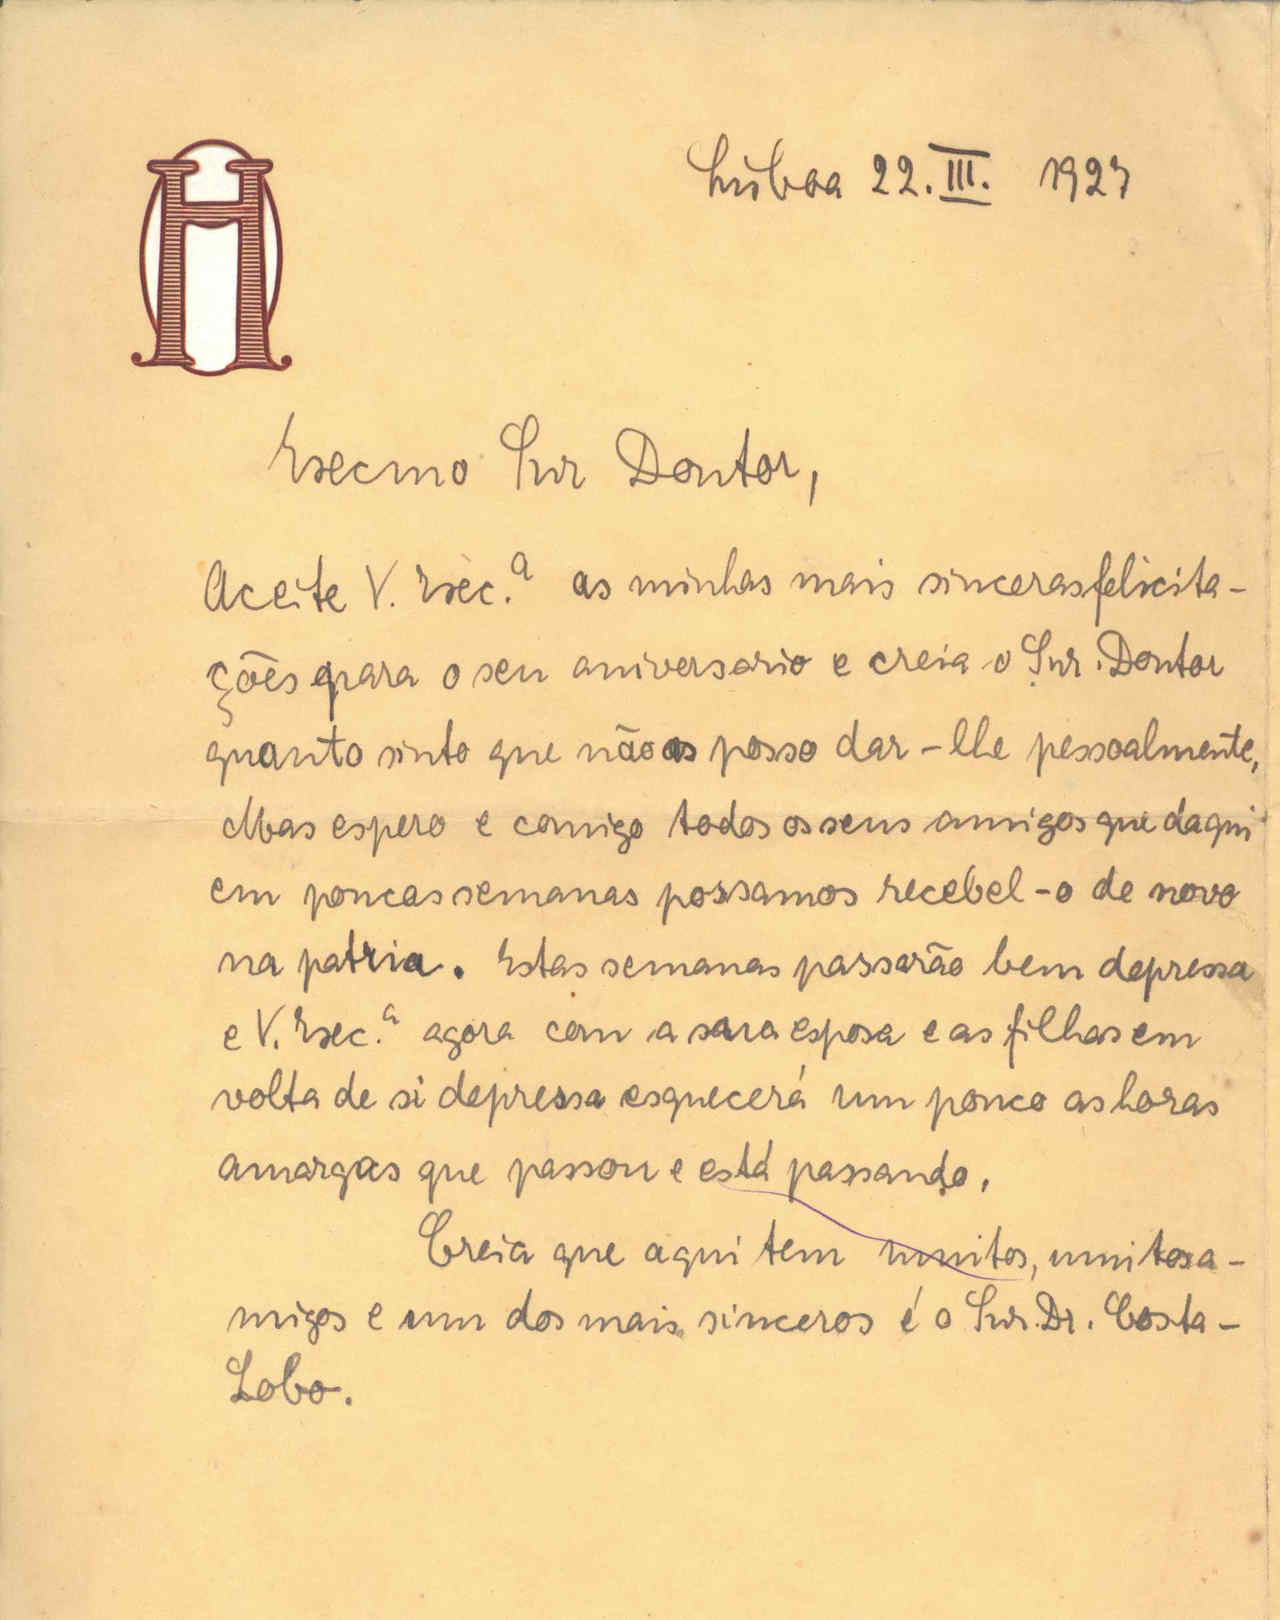 OH
Lisboa 22.III. 1927
Excmo Snr Doutor,
Aceite V. Exc.ª as minhas mais sinceras felicita-
ções para o seu aniversario e creia o Snr. Doutor
quanto sinto que não as posso dar-lhe pessoalmente,
Mas espero e comigo todos os seus amigos que daqui
em poucas semanas possamos recebel-o de novo
na patria. Estas semanas passarão bem depressa
e V. Exc.ª agora com a sua esposa e as filhas em
volta de si depressa esquecerá um pouco as horas
amargas que passou e está passando.
Creia que aqui tem muitos, muitos a-
migos e um dos mais sinceros é o Snr. Dr. Costa-
Lobo.